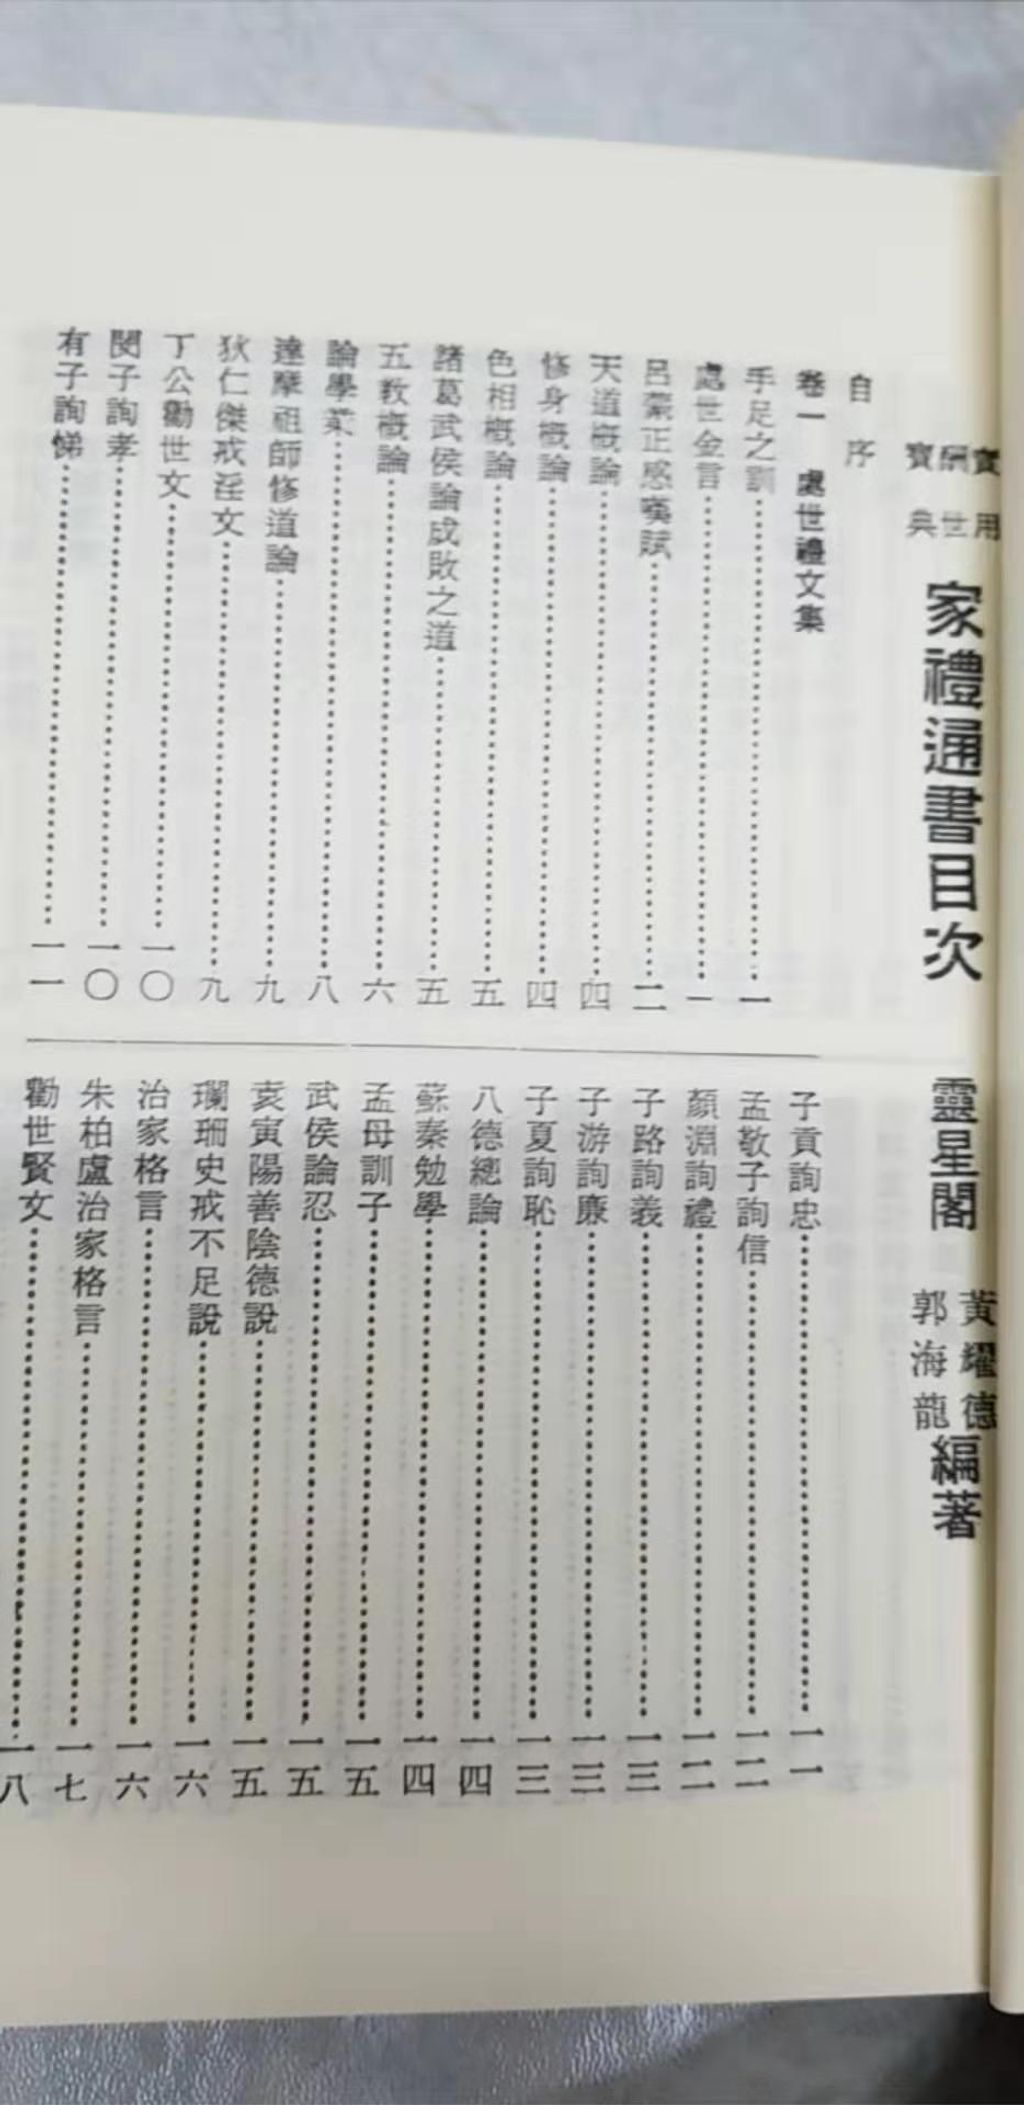 實用
酬世
寶典
家禮通書目次
靈星閣
黃耀德
郭海龍
編著
自序
卷一 處世禮文集
手足之訓……一
處世金言……一
呂蒙正感嘆賦……二
天道概論……四
修身概論……四
色相概論……五
諸葛武侯論成敗之道……五
五教概論……六
論學業……八
達摩祖師修道論……九
狄仁傑戒淫文……九
丁公勸世文……一〇
閔子詢孝……一〇
有子詢悌……一一
子貢詢忠……一一
孟敬子詢信……一二
顏淵詢禮……一二
子路詢義……一三
子游詢廉……一三
子夏詢恥……一三
八德總論……一四
蘇秦勉學……一四
孟母訓子……一五
武侯論忍……一五
袁寅陽善陰德說……一五
瓓珊史戒不足說……一六
治家格言……一六
朱柏盧治家格言……一七
勸世賢文……一八